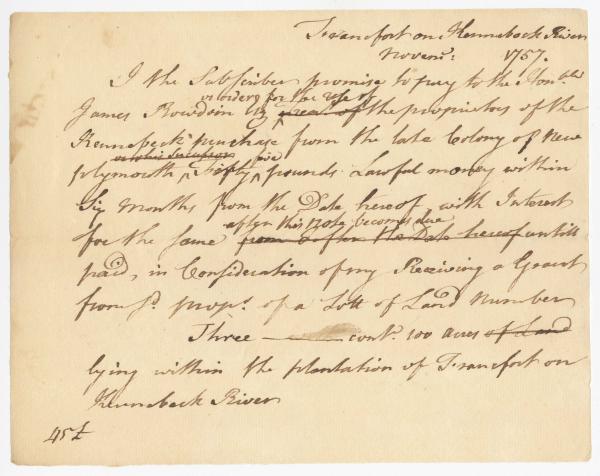 Francfort on Kennebeck River
Novemr: 1757.
I the Subscriber promise to pay to the Honble
or order for the use of
James Bowdoin Esq treasr of the proprietors of the
Kennebeck purchase from the late Colony of New
or to his Successor five
plymouth Fifty pounds Lawful money within
Six Months from the Date hereof with Interest
after this note becomes due
for the same from & after the Date hereof untill
paid, in Consideration of my Receiving a Grant
from sd. props. of a Lott of Land Number
Three contg. 100 acres of Land
lying within the plantation of Francfort on
Kennebeck River
45£